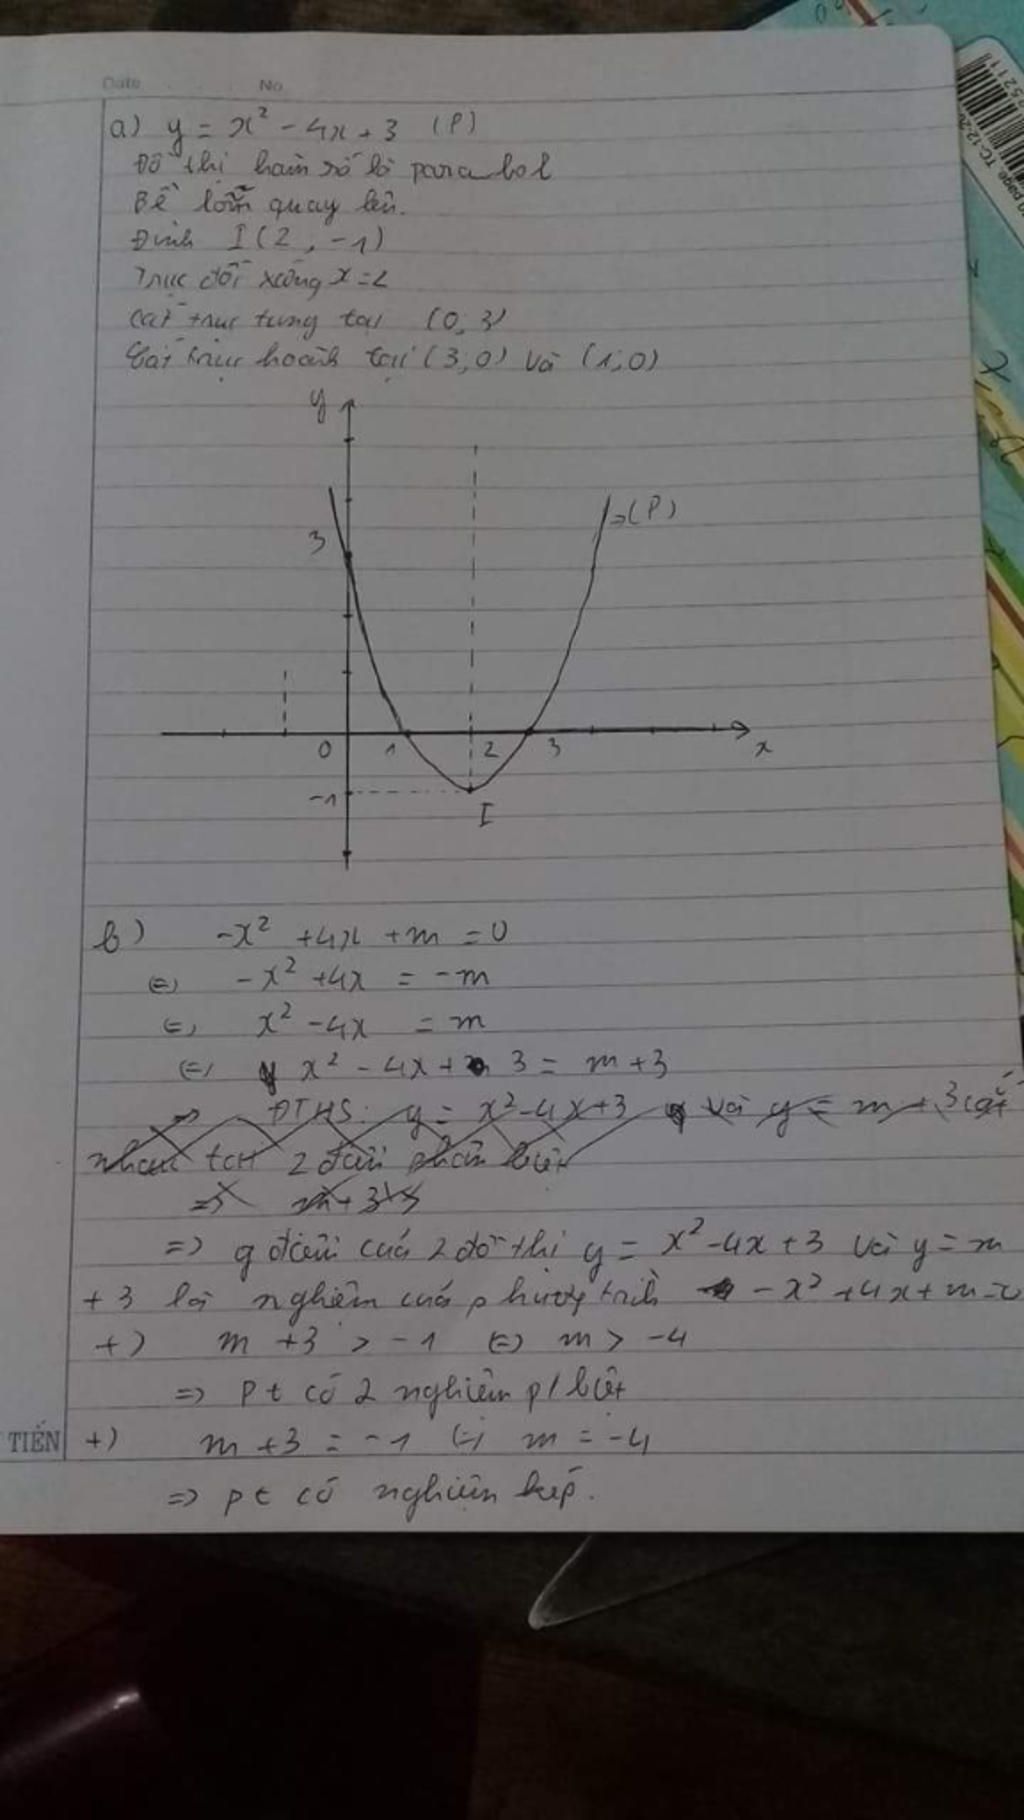 Date No
a) y = x² - 4x + 3 (P)
Đồ thị hàm số là parabol
Bề lõm quay lên.
Đỉnh I(2, -1)
Trục đối xứng x = 2
Cắt trục tung tại (0, 3)
Cắt trục hoành tại (3, 0) và (1, 0)
y
3
(P)
0 1 2 3 x
-1
I
b) -x² + 4x + m = 0
⇔ -x² + 4x = -m
⇔ x² - 4x = m
⇔ x² - 4x + 3 = m + 3
⇒ ĐTHS: y = x² - 4x + 3 và y = m + 3 cắt
nhau tại 2 điểm phân biệt
⇒ m + 3
⇒ g điểm của 2 đồ thị y = x² - 4x + 3 và y = m
+ 3 là nghiệm của phương trình -x² + 4x + m = 0
+) m + 3 > -1 ⇔ m > -4
⇒ pt có 2 nghiệm p/biệt
TIẾN +) m + 3 = -1 ⇔ m = -4
⇒ pt có nghiệm kép.